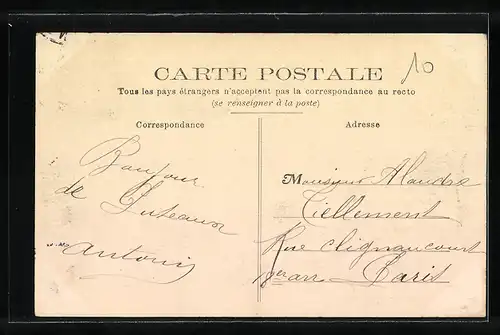 10
CARTE POSTALE
Tous les pays étrangers n'acceptent pas la correspondance au recto
(se renseigner à la poste)
Correspondance
Adresse
Bonjour
de Puteaux
Antonin
Monsieur
Tiellement
Rue Clignancourt
Paris